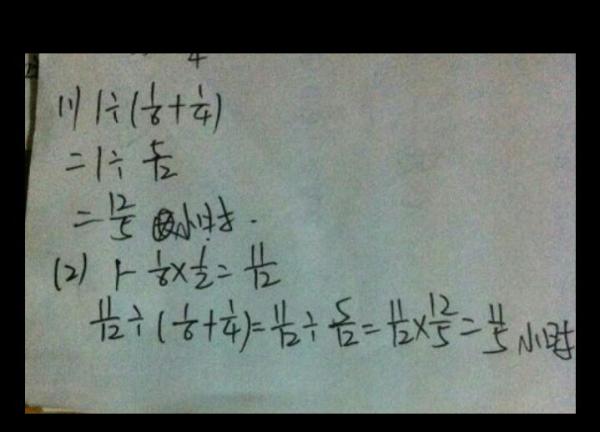 (1) 1÷(1/6+1/4)
=1÷ 5/12
=12/5 小时.
(2) 1-1/6×1/2=11/12
11/12÷(1/6+1/4)=11/12÷5/12=11/12×12/5=11/5 小时